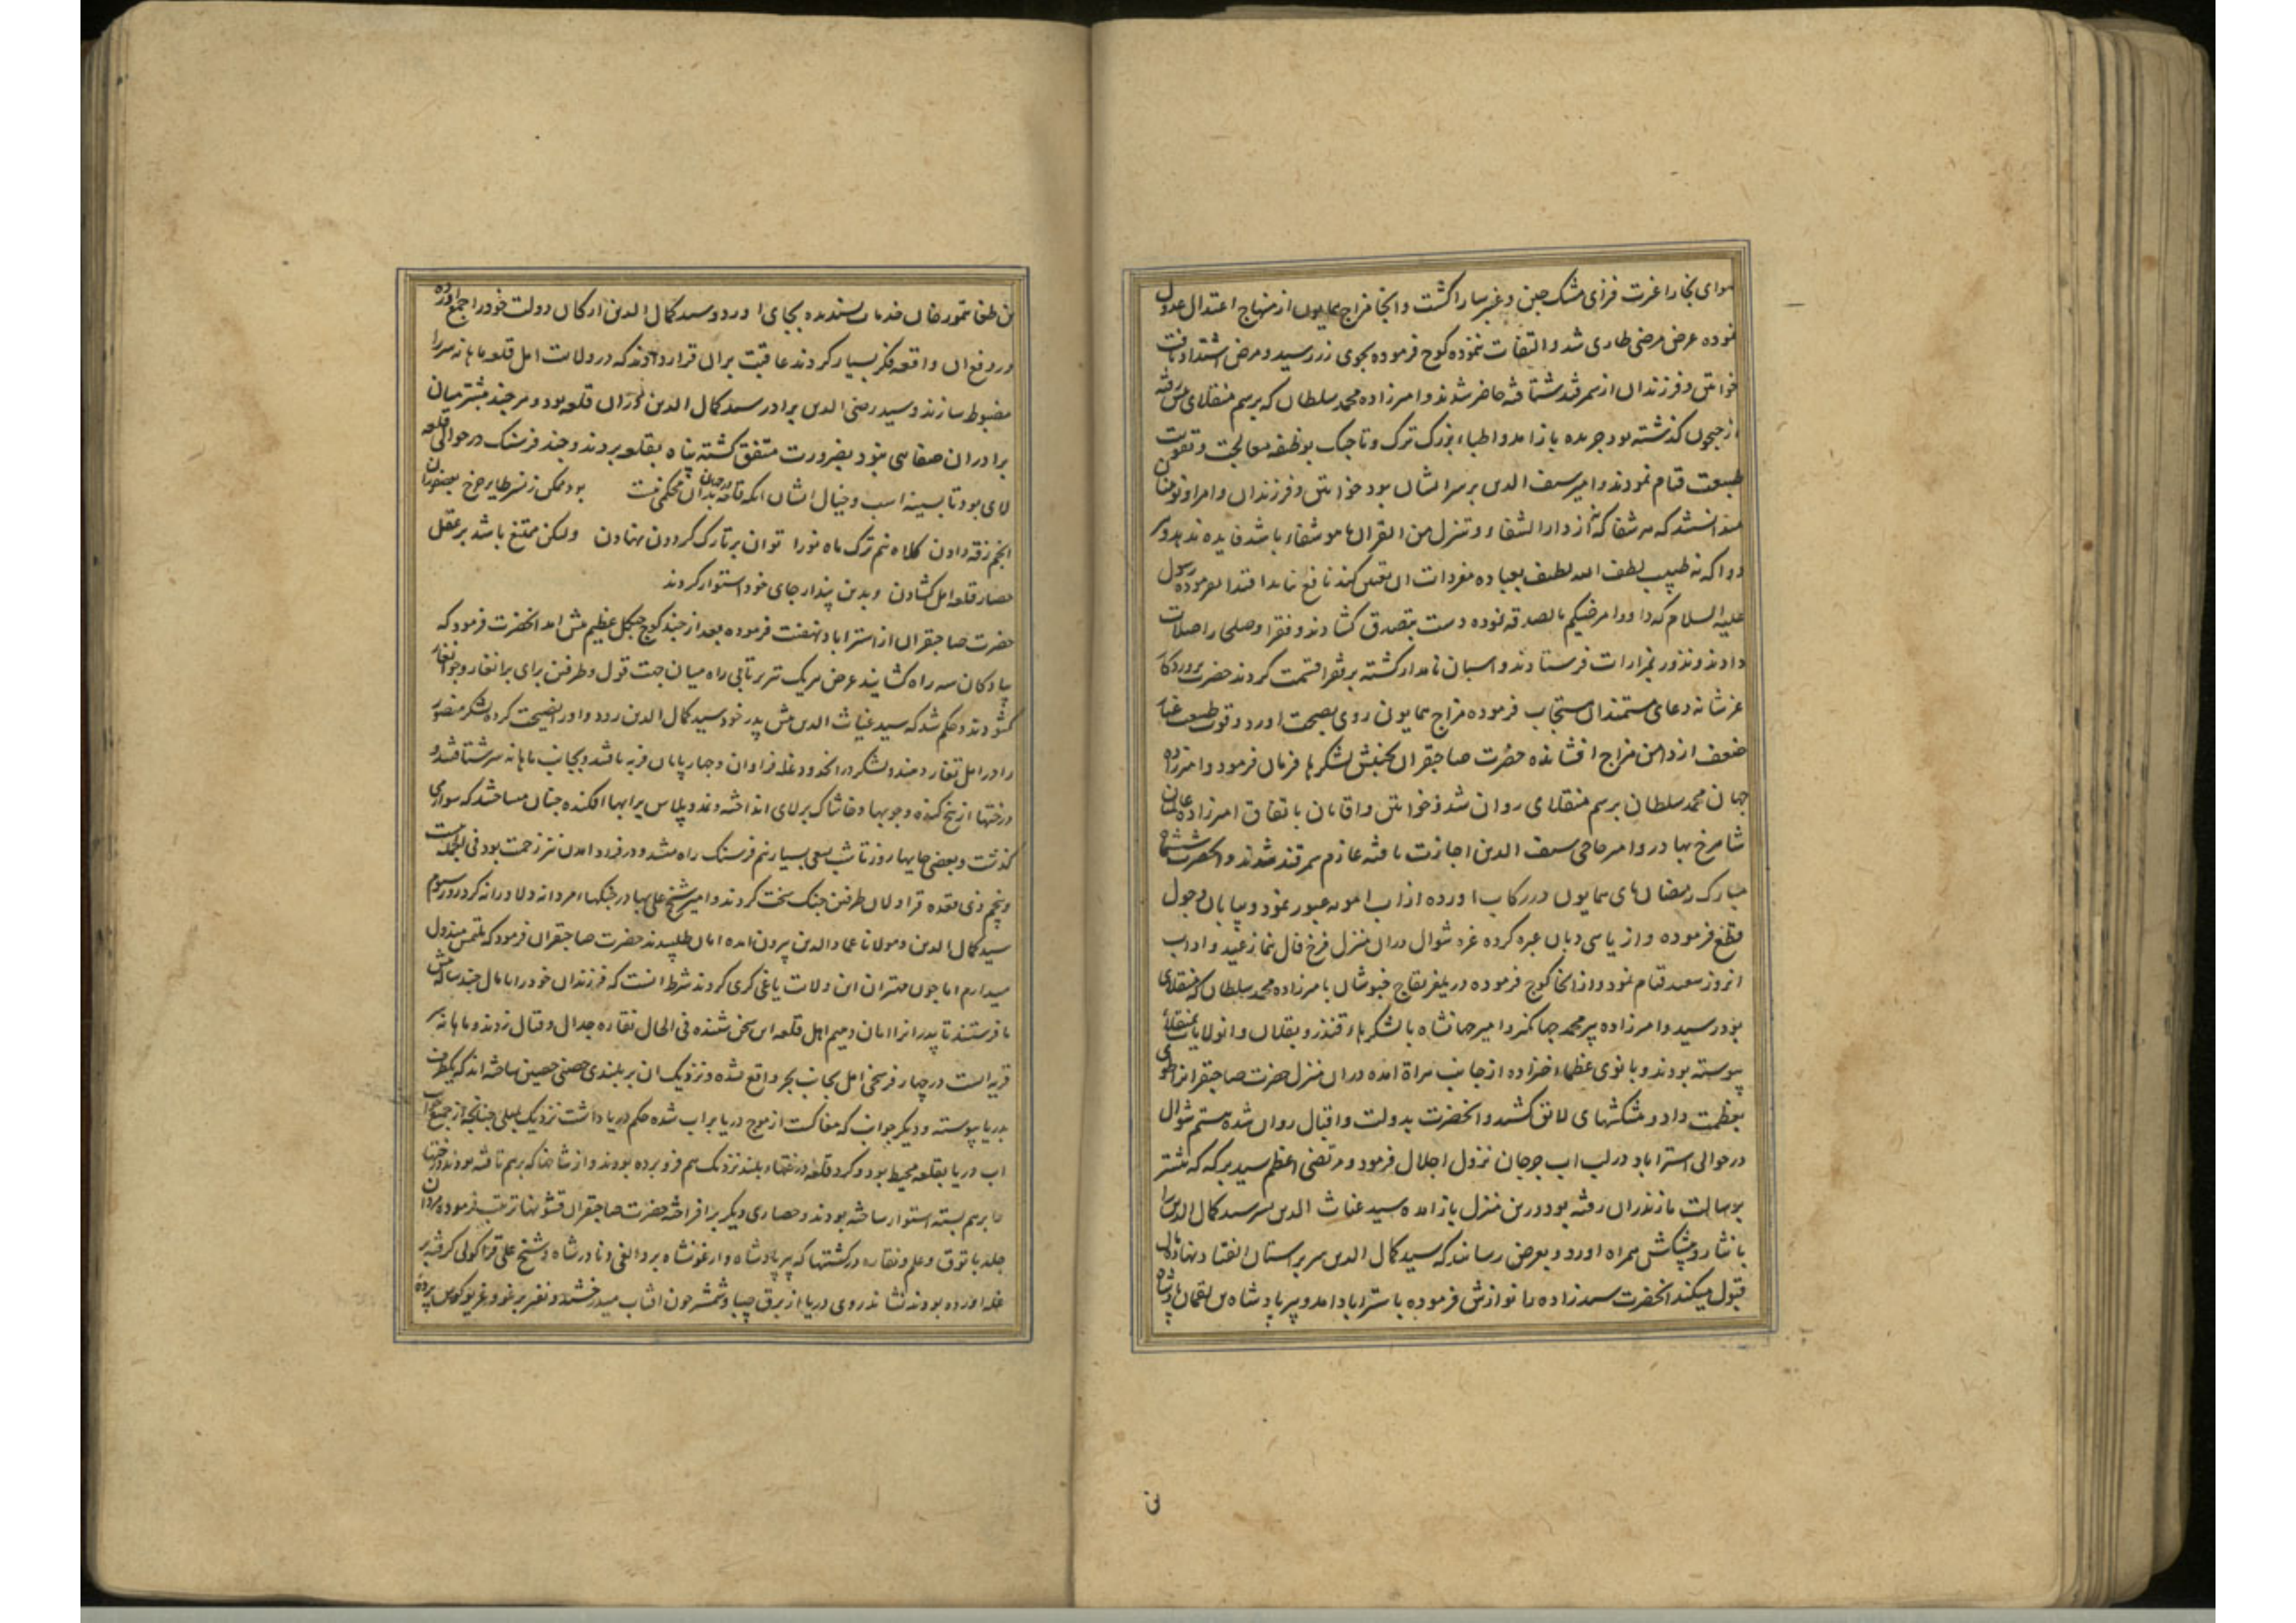 هوای بخارا غیرت فزای مشک چین و عنبر سارا گشت و انجا مزاج همایون از منهاج اعتدال عدول
نموده عرض مرضی طاری شد و التفات ننموده کوچ فرموده بجوی زر رسید و مرض اشتداد یافت
خواتین و فرزندان از سمرقند شتافته حاضر شدند و امیرزاده محمد سلطان که برسم منقلای پیش رفته
از جیحون گذشته بود جریده باز امد و اطباء بزرگ ترک و تاجیک بوظیفه معالجت و تقویت
طبیعت قیام نمودند و امیر سیف الدین بر سر ایشان بود خواتین و فرزندان و امرا و نوینان
میدانستند که هر شفا که نه از دارالشفاء و تنزل من القران ما هو شفاء باشد فایده ندهد و هر
دوا که نه طبیب لطف الله لطیف بعباده مفردات ان تعیین کند نافع نیاید اقتدا بفرموده رسول
علیه السلام که داووا مرضیکم بالصدقه نموده دست بتصدق گشادند و فقرا و صلحا را صلات
دادند و نذور بمزارات فرستادند و اسبان نامدار کشته بر فقرا قسمت کردند حضرت پروردگار
عز شانه دعای مستمندان مستجاب فرموده مزاج همایون روی بصحت اورد و قوت طبیعت غبار
ضعف از دامن مزاج افشانده حضرت صاحبقران بجنبش لشکرها فرمان فرمود و امیرزاده
جهان محمد سلطان برسم منقلای روان شد و خواتین و اقایان باتفاق امیرزاده عالمیان
شاهرخ بهادر و امیر حاجی سیف الدین اجازت یافته عازم سمرقند شدند و انحضرت ششم
مبارک رمضان پای همایون در رکاب اورده از اب امویه عبور نمود و بیابان و چول
قطع فرموده و از یاسی دبان عبره کرده غره شوال دران منزل فرخ فال نماز عید و اداب
انروز سعید قیام نمود و از انجا کوچ فرموده در یلغر یغاج خبوشان بامیرزاده محمد سلطان که بمنقلای
بود رسید و امیرزاده پیر محمد جهانگیر و امیر جهانشاه با لشکرهاء قندز و بقلان و انولایات بمنقلای
پیوسته بودند و بانوی عظما خانزاده از جانب هراة امده دران منزل حضرت صاحبقران را طوی
بعظمت داد و پیشکشهای لایق کشید و انحضرت بدولت و اقبال روان شده بیستم شوال
در حوالی استراباد در لب اب جرجان نزول اجلال فرمود و مرتضی اعظم سید برکه که پیشتر
برسالت مازندران رفته بود درین منزل باز امده سید غیاث الدین پسر سید کمال الدین را
با نثار و پیشکش همراه اورد و بعرض رسانید که سید کمال الدین سر بر استان انقیاد نهاده مال
قبول میکند انحضرت سید زاده را نوازش فرموده باستراباد امد و پیر پادشاه بن لقمان پادشاه
بن طغا تیمور خان خدمات پسندیده بجای اورد و سید کمال الدین ارکان دولت خود را جمع اورده
در دفع ان واقعه فکر بسیار کردند عاقبت بران قرار دادند که در ولایت امل قلعه ماهانه سر را
مضبوط سازند و سید رضی الدین برادر سید کمال الدین دران قلعه بود و هرچند پیشتر میان
برادران صفایی نبود بضرورت متفق گشته پناه بقلعه بردند و چند فرسنگ در حوالی قلعه
لای بود تا بسینه اسب و خیال ایشان انکه قلعه در جهان بدان محکمی نیست بود ممکن ز نسر طایر چرخ بعضوران
انجم زقه دادن کلاه نیم ترک ماه نو را توان بر تارک گردون نهادن ولیکن ممتنع باشد بر عقل
حصار قلعه امل گشادن و بدین پندار جای خود استوار کردند
حضرت صاحبقران از استراباد نهضت فرموده بعد از چند کوچ جنگل عظیم پیش امد انحضرت فرمود که
پیادگان سه راه گشایند عرض هر یک تیر پرتابی راه میان جهت قول و طرفین برای برانغار و جوانغار
گشودند و حکم شد که سید غیاث الدین پیش پدر خود سید کمال الدین رود و او را نصیحت کرده لشکر منصور
را در امل تغار دهند و لشکر در انحدود غله فراوان و چارپایان فربه یافتند و بجانب ماهانه سر شتافتند و
درختها از بیخ کنده و چوبها و خاشاک بر لای انداخته و نمد و پلاس بر انها افکنده چنان میساختند که سواری
گذشت و بعضی جایها روز تا شب بسعی بسیار نیم فرسنگ راه میشد و در فرود امدن نیز زحمت بود فی الجمله بیست
و پنجم ذی قعده قراولان طرفین جنگ سخت کردند و امیر شیخ علی بهادر جنگهاء مردانه و دلاورانه کرد روز سیوم
سید کمال الدین و مولانا عماد الدین بیرون امده امان طلبیدند حضرت صاحبقران فرمود که ملتمس مبذول
میدارم اما چون مهتران این ولایت یاغی گری کردند شرط انست که فرزندان خود را با مال چند ساله پیش
ما فرستند تا پدرانرا امان دهیم اهل قلعه این سخن شنیده فی الحال نقاره جدال و قتال زدند و ماهانه سر
قریه ایست در چهار فرسخی امل بجانب بحر واقع شده و نزدیک ان بر بلندی حصنی حصین ساخته اند که یکطرف
بدریا پیوسته و دیگر جوانب که مغاکست از موج دریا پر اب شده حکم دریا داشت نزدیک بمیلی چنانچه از جمیع جوانب
اب دریا بقلعه محیط بود و گرد قلعه درختهاء بلند نزدیک هم فرو برده بودند و از شاخها که برهم تافته بودند درختها
را برهم بسته استوار ساخته بودند و حصاری دیگر برافراخته حضرت صاحبقران قشونها ترتیب فرموده مردان
جلد با توق و علم و نقاره در کشتیها که پیر پادشاه و ارغونشاه بردالغی و نادر شاه و شیخ علی قرا کولی گرفته بر
خله اورده بودند نشاند روی دریا از برق جیبا و شمشیر چون افتاب میدرخشید و نفیر برغو و غریو کوس پرده
نی